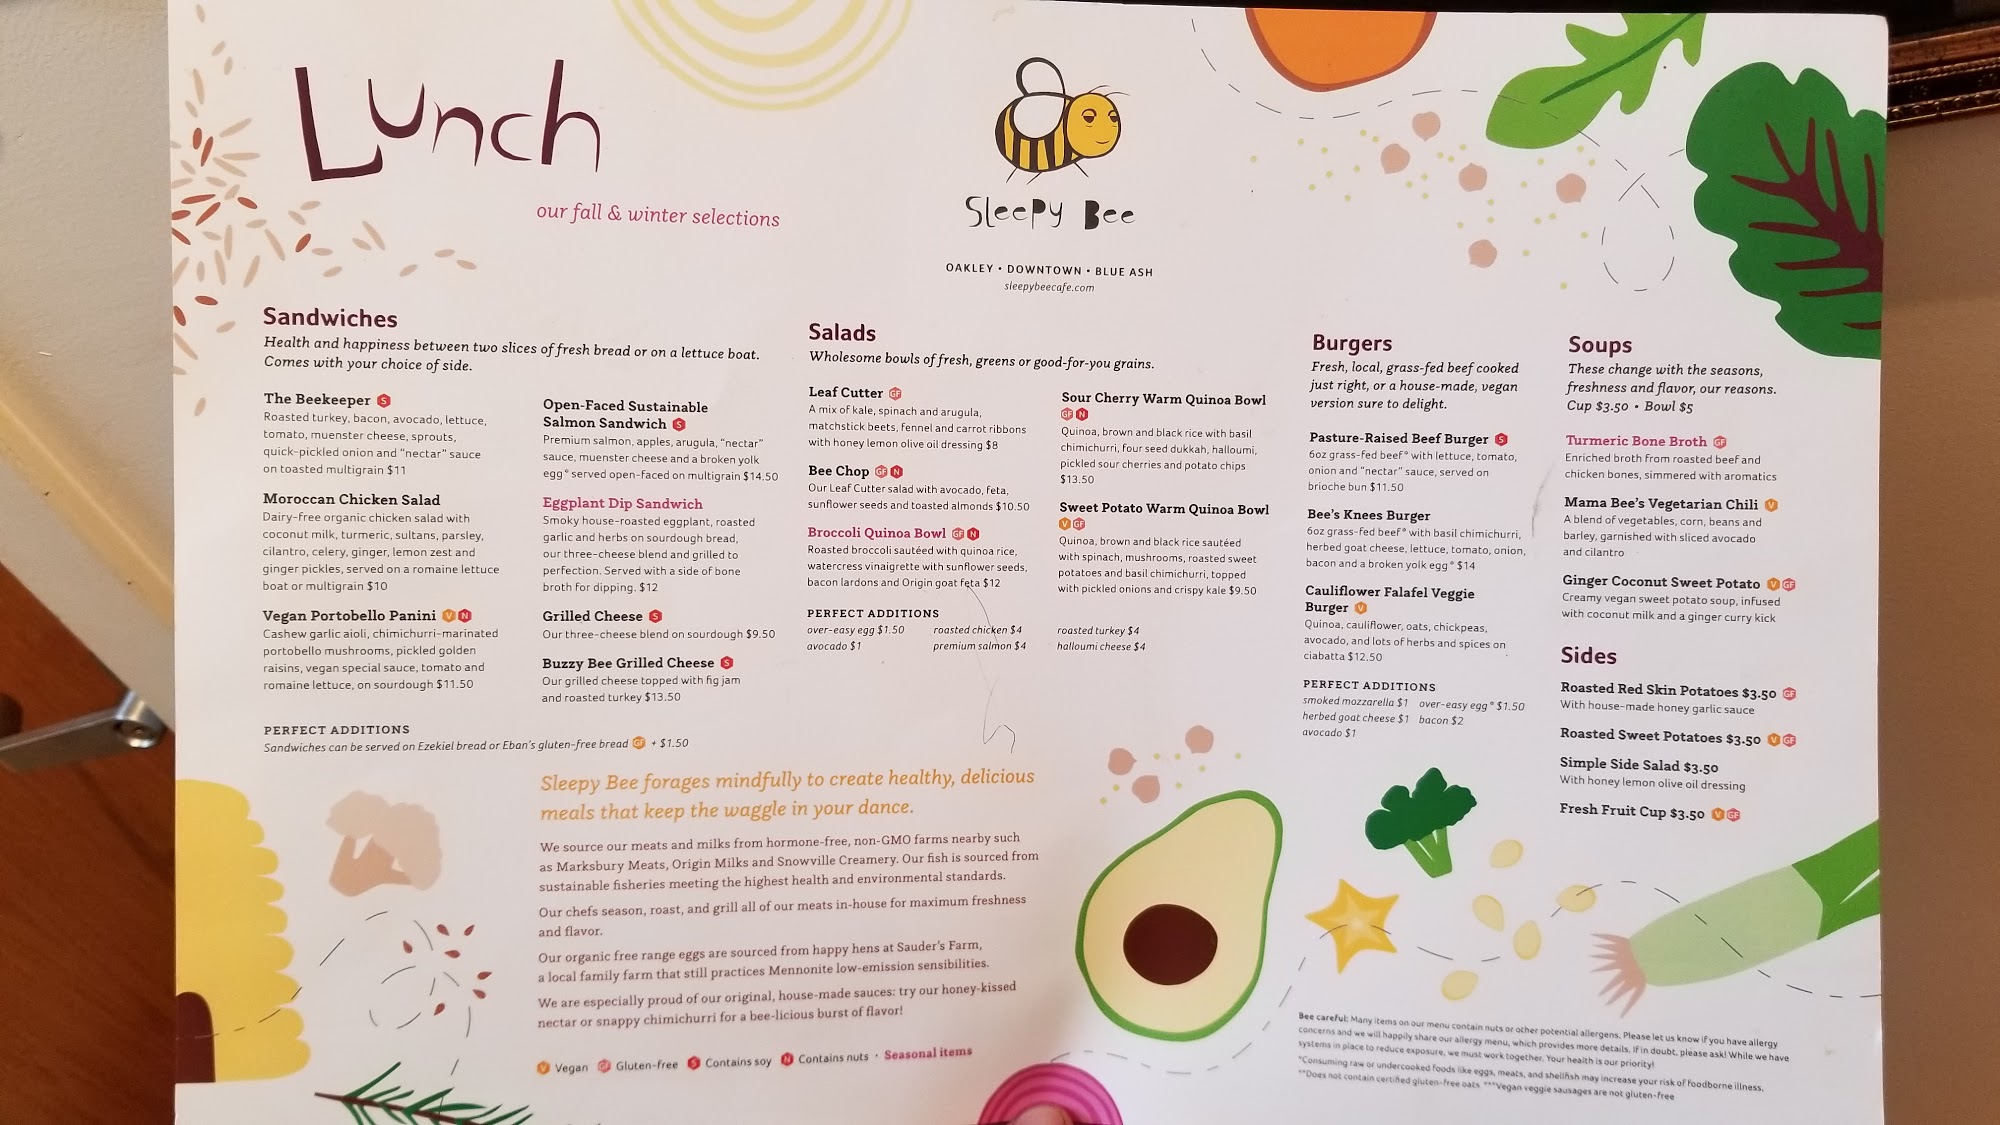 Lunch
our fall & winter selections
Sleepy Bee
OAKLEY • DOWNTOWN • BLUE ASH
sleepybeecafe.com
Sandwiches
Health and happiness between two slices of fresh bread or on a lettuce boat.
Comes with your choice of side.
The Beekeeper S
Roasted turkey, bacon, avocado, lettuce,
tomato, muenster cheese, sprouts,
quick-pickled onion and "nectar" sauce
on toasted multigrain $11
Moroccan Chicken Salad
Dairy-free organic chicken salad with
coconut milk, turmeric, sultans, parsley,
cilantro, celery, ginger, lemon zest and
ginger pickles, served on a romaine lettuce
boat or multigrain $10
Vegan Portobello Panini V N
Cashew garlic aioli, chimichurri-marinated
portobello mushrooms, pickled golden
raisins, vegan special sauce, tomato and
romaine lettuce, on sourdough $11.50
Open-Faced Sustainable
Salmon Sandwich S
Premium salmon, apples, arugula, "nectar"
sauce, muenster cheese and a broken yolk
egg* served open-faced on multigrain $14.50
Eggplant Dip Sandwich
Smoky house-roasted eggplant, roasted
garlic and herbs on sourdough bread,
our three-cheese blend and grilled to
perfection. Served with a side of bone
broth for dipping. $12
Grilled Cheese S
Our three-cheese blend on sourdough $9.50
Buzzy Bee Grilled Cheese S
Our grilled cheese topped with fig jam
and roasted turkey $13.50
PERFECT ADDITIONS
Sandwiches can be served on Ezekiel bread or Eban's gluten-free bread GF + $1.50
Salads
Wholesome bowls of fresh, greens or good-for-you grains.
Leaf Cutter GF
A mix of kale, spinach and arugula,
matchstick beets, fennel and carrot ribbons
with honey lemon olive oil dressing $8
Bee Chop GF N
Our Leaf Cutter salad with avocado, feta,
sunflower seeds and toasted almonds $10.50
Broccoli Quinoa Bowl GF N
Roasted broccoli sautéed with quinoa rice,
watercress vinaigrette with sunflower seeds,
bacon lardons and Origin goat feta $12
Sour Cherry Warm Quinoa Bowl
GF N
Quinoa, brown and black rice with basil
chimichurri, four seed dukkah, halloumi,
pickled sour cherries and potato chips
$13.50
Sweet Potato Warm Quinoa Bowl
V GF
Quinoa, brown and black rice sautéed
with spinach, mushrooms, roasted sweet
potatoes and basil chimichurri, topped
with pickled onions and crispy kale $9.50
PERFECT ADDITIONS
over-easy egg $1.50 roasted chicken $4 roasted turkey $4
avocado $1 premium salmon $4 halloumi cheese $4
Burgers
Fresh, local, grass-fed beef cooked
just right, or a house-made, vegan
version sure to delight.
Pasture-Raised Beef Burger S
6oz grass-fed beef* with lettuce, tomato,
onion and "nectar" sauce, served on
brioche bun $11.50
Bee's Knees Burger
6oz grass-fed beef* with basil chimichurri,
herbed goat cheese, lettuce, tomato, onion,
bacon and a broken yolk egg* $14
Cauliflower Falafel Veggie
Burger V
Quinoa, cauliflower, oats, chickpeas,
avocado, and lots of herbs and spices on
ciabatta $12.50
PERFECT ADDITIONS
smoked mozzarella $1 over-easy egg* $1.50
herbed goat cheese $1 bacon $2
avocado $1
Soups
These change with the seasons,
freshness and flavor, our reasons.
Cup $3.50 • Bowl $5
Turmeric Bone Broth GF
Enriched broth from roasted beef and
chicken bones, simmered with aromatics
Mama Bee's Vegetarian Chili V
A blend of vegetables, corn, beans and
barley, garnished with sliced avocado
and cilantro
Ginger Coconut Sweet Potato V GF
Creamy vegan sweet potato soup, infused
with coconut milk and a ginger curry kick
Sides
Roasted Red Skin Potatoes $3.50 GF
With house-made honey garlic sauce
Roasted Sweet Potatoes $3.50 V GF
Simple Side Salad $3.50
With honey lemon olive oil dressing
Fresh Fruit Cup $3.50 V GF
Sleepy Bee forages mindfully to create healthy, delicious
meals that keep the waggle in your dance.
We source our meats and milks from hormone-free, non-GMO farms nearby such
as Marksbury Meats, Origin Milks and Snowville Creamery. Our fish is sourced from
sustainable fisheries meeting the highest health and environmental standards.
Our chefs season, roast, and grill all of our meats in-house for maximum freshness
and flavor.
Our organic free range eggs are sourced from happy hens at Sauder's Farm,
a local family farm that still practices Mennonite low-emission sensibilities.
We are especially proud of our original, house-made sauces: try our honey-kissed
nectar or snappy chimichurri for a bee-licious burst of flavor!
V Vegan GF Gluten-free S Contains soy N Contains nuts • Seasonal items
Bee careful: Many items on our menu contain nuts or other potential allergens. Please let us know if you have allergy
concerns and we will happily share our allergy menu, which provides more details. If in doubt, please ask! While we have
systems in place to reduce exposure, we must work together. Your health is our priority!
*Consuming raw or undercooked foods like eggs, meats, and shellfish may increase your risk of foodborne illness.
**Does not contain certified gluten-free oats ***Vegan veggie sausages are not gluten-free